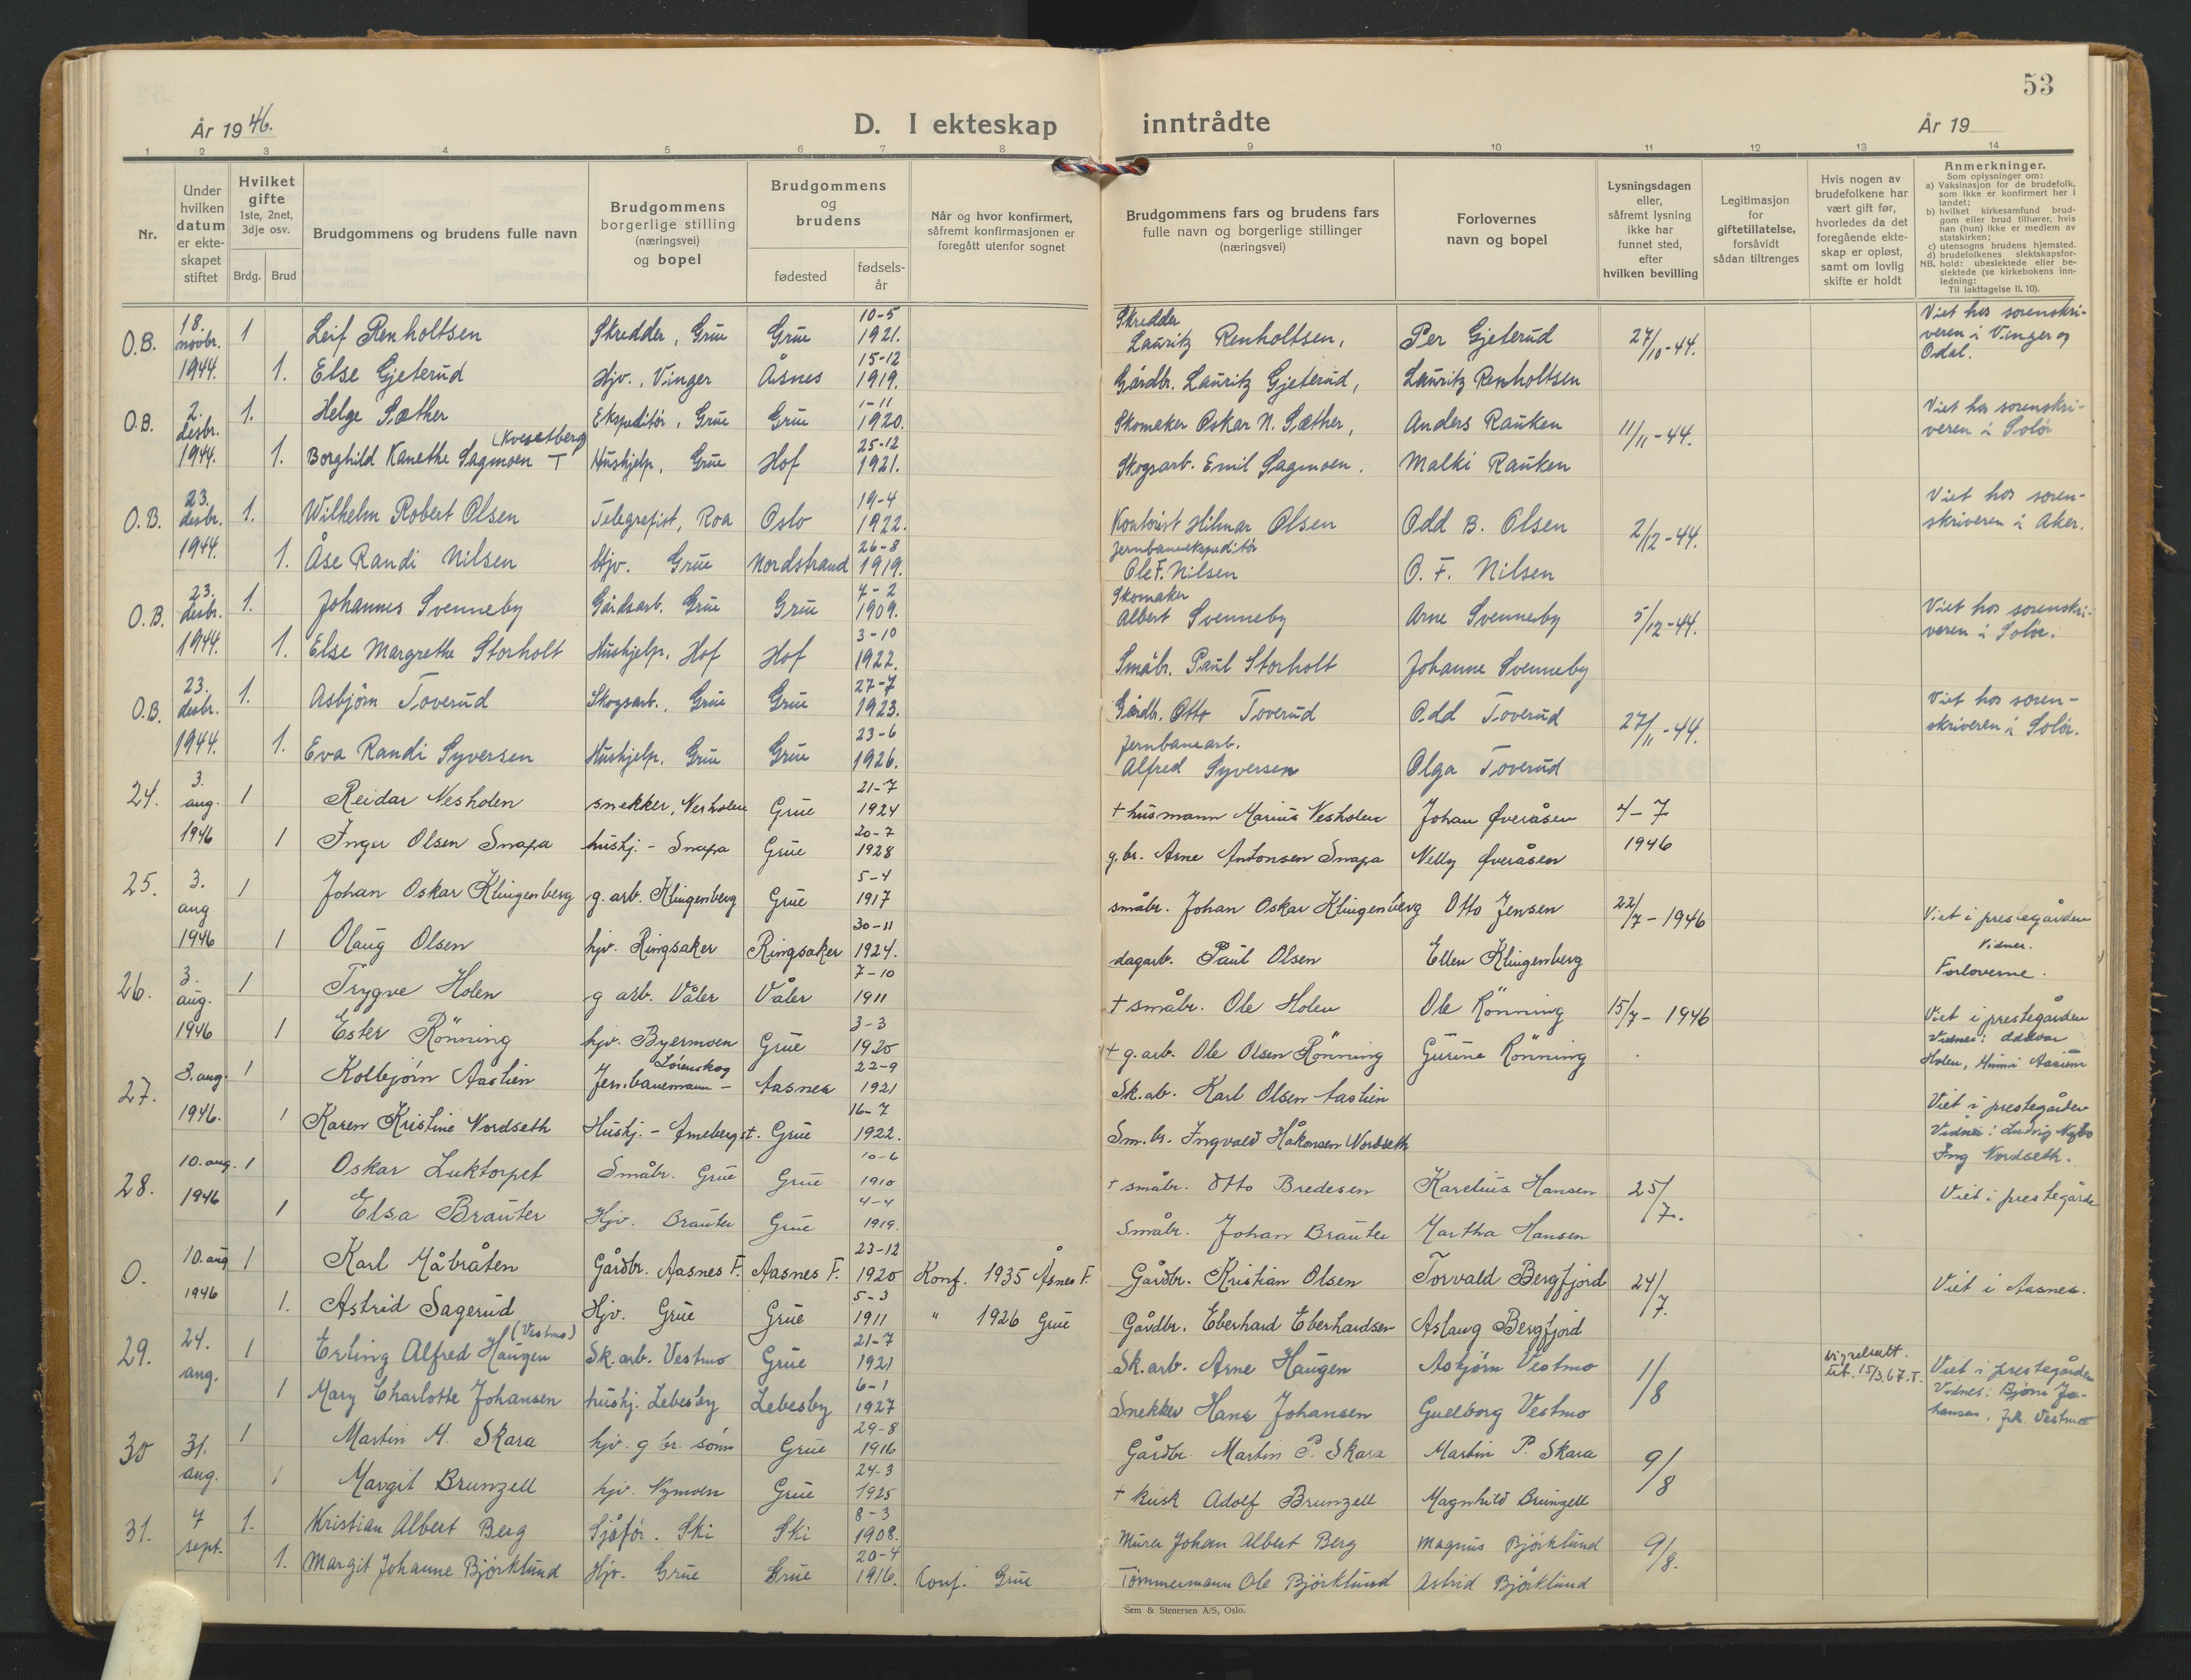 53
År 1946.
D. I ekteskap inntrådte
År 19
1 2 3 4 5 6 7 8 9 10 11 12 13 14
Nr.
Under
hvilken
datum
er ekte-
skapet
stiftet
Hvilket
gifte
1ste, 2net,
3dje osv.
Brdg. Brud
Brudgommens og brudens fulle navn
Brudgommens
borgerlige stilling
(næringsvei)
og bopel
Brudgommens
og
brudens
fødested
fødsels-
år
Når og hvor konfirmert,
såfremt konfirmasjonen er
foregått utenfor sognet
Brudgommens fars og brudens fars
fulle navn og borgerlige stillinger
(næringsvei)
Forlovernes
navn og bopel
Lysningsdagen
eller,
såfremt lysning
ikke har
funnet sted,
efter
hvilken bevilling
Legitimasjon
for
giftetillatelse,
forsåvidt
sådan tiltrenges
Hvis nogen av
brudefolkene har
vært gift før,
hvorledes da det
foregående ekte-
skap er opløst,
samt om lovlig
skifte er holdt
Anmerkninger.
Som oplysninger om:
a) Vaksinasjon for de brudefolk,
som ikke er konfirmert her i
landet;
b) hvilket kirkesamfund brud-
gom eller brud tilhører, hvis
han (hun) ikke er medlem av
statskirken;
c) utensogns brudens hjemsted.
d) brudefolkenes slektskapsfor-
NB. hold: ubeslektede eller be-
slektede (se kirkebokens inn-
ledning:
Til iakttagelse II, 10).
O.B. 18. novbr. 1944. 1 Leif Renholtsen Skredder, Grue Grue 10-5 1921. Skredder Lauritz Renholtsen, Per Gjeterud 27/10-44. Viet hos sorenskri-
veren i Vinger og
Odal.
1. Else Gjeterud Hjv., Vinger Åsnes 15-12 1919. Gårdbr. Lauritz Gjeterud, Lauritz Renholtsen
O.B. 2. desbr. 1944. 1. Helge Sæther Ekspeditör, Grue Grue 1-11 1920. Skomaker Oskar N. Sæther, Anders Rauken 11/11-44. Viet hos sorenskri-
veren i Solör
(Kvesetberg
1. Borghild Kanethe Sagmoen T Hushjelp, Grue Hof 25-12 1921. Skogsarb. Emil Sagmoen. Malki Rauken
O.B. 23. desbr. 1944. 1. Wilhelm Robert Olsen Telegrafist, Roa Oslo 19-4 1922. Kontorist Hilmar Olsen Odd B. Olsen 2/12-44. Viet hos soren-
skriveren i Aker.
1. Åse Randi Nilsen Hjv. Grue Nordstrand 26-8 1919. Jernbaneekspeditör Ole F. Nilsen O. F. Nilsen
O.B. 23. desbr. 1944. 1. Johannes Svenneby Gårdsarb. Grue Grue 7-2 1909. Skomaker Albert Svenneby Arne Svenneby 5/12-44. Viet hos sorenskri-
veren i Solör.
1. Else Margrethe Storholt Hushjelp, Hof Hof 3-10 1922. Småbr. Paul Storholt Johanne Svenneby
O.B. 23. desbr. 1944. 1. Asbjörn Toverud Skogsarb., Grue Grue 27-7 1923. Gårdb. Otto Toverud Odd Toverud 27/11-44. Viet hos soren-
skriveren i Solör.
1. Eva Randi Syversen Hushjelp, Grue Grue 23-6 1926. Jernbanearb. Alfred Syversen Olga Toverud
24. 3. aug. 1946 1 Reidar Nesholen snekker, Nesholen Grue 21-7 1924 + husmann Marius Nesholen Johan Øveråsen 4-7 1946
1 Inger Olsen Snapa hushj. - Snapa Grue 20-7 1928 g.br. Arne Antonsen Snapa Nelly Øveråsen
25. 3. aug 1946 1 Johan Oskar Klingenberg g. arb. Klingenberg Grue 5-4 1917 småbr. Johan Oskar Klingenberg Otto Jensen 22/7-1946 Viet i prestegården
Vidner.
Forloverne.
1 Olaug Olsen hjv. Ringsaker Ringsaker 30-11 1924. dagarb. Paul Olsen Ellen Klingenberg
26. 3. aug. 1946 1 Trygve Holen g arb. Våler Våler 7-10 1911 + småbr. Ole Holen Ole Rönning 15/7-1946 Viet i prestegården
Vidner:
Holen,
1 Ester Rönning hjv. Byermoen Grue 3-3 1920 + g.arb. Ole Olsen Rönning Gurine Rönning
27. 3. aug. 1946. 1 Kolbjørn Aaslien Jernbanemann - Lørenskog Aasnes 22-9 1921 Sk.arb. Karl Olsen Aaslien Viet i prestegården
Vidner: Ludvig Nybo
Ing Nordseth.
1 Karen Kristine Nordseth Hushj. - Arneberg st. Grue 16-7 1922. Sm.br. Ingvald Håkonsen Nordseth
28. 10. aug. 1946 1 Oskar Luktorpet Småbr. Grue Grue 10-6 1910 + småbr. Otto Bredesen Karelius Hansen 25/7. Viet i prestegårde
1 Elsa Brauter Hjv. Brauter Grue 4-4 1919. Småbr. Johan Brauter Martha Hansen
O. 10. aug 1946 1 Karl Måbråten Gårdbr. Aasnes F. Aasnes F. 23-12 1920 Konf. 1935 Åsnes F. Gårdbr. Kristian Olsen Torvald Bergfjord 24/7. Viet i Aasnes.
1. Astrid Sagerud Hjv. Grue Grue 5-3 1911 " 1926 Grue Gårdbr. Eberhard Eberhardsen Aslaug Bergfjord
29. 24. aug. 1 Erling Alfred Haugen (Vestmo) Sk.arb. Vestmo Grue 21-7 1921 Sk.arb. Arne Haugen Asbjørn Vestmo 1/8 Vigselsatt.
utt. 15/3.67.T. Viet i prestegården
Vidner: Bjørn Jo-
hansen, Vestmo
1 Mary Charlotte Johansen hushj. Lebesby Lebesby 6-1 1927 Snekker Hans Johansen Guelborg Vestmo
30 31. aug. 1 Martin M. Skara hjv. g br. sönn Grue 29-8 1916 Gårdbr. Martin P. Skara Martin P. Skara 9/8
1 Margit Brunzell hjv. Nymoen Grue 24-3 1925 + kusk Adolf Brunzell Magnhild Brunzell
31. 7 sept. 1. Kristian Albert Berg Sjåför. Ski Ski 8-3 1908. Murer Johan Albert Berg Magnus Bjørklund 9/8.
1. Margit Johanne Bjørklund Hjv. Grue Grue 20-4 1916. Konf. Grue Tømmermann Ole Bjørklund Astrid Bjørklund
Sem & Stenersen A/S, Oslo.